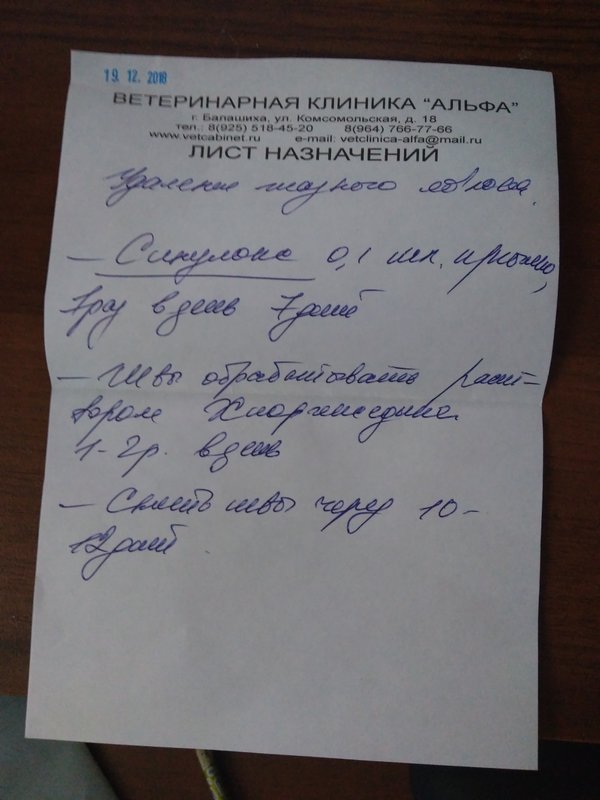 19.12.2018
ВЕТЕРИНАРНАЯ КЛИНИКА "АЛЬФА"
г. Балашиха, ул. Комсомольская, д. 18
тел.: 8(925) 518-45-20 8(964) 766-77-66
www.vetcabinet.ru e-mail: vetclinica-alfa@mail.ru
ЛИСТ НАЗНАЧЕНИЙ
Удаление глазного яблока.
- Синулокс 0,1 мл. п/кожно,
1 раз в день 7 дней
- Швы обрабатывать раст-
вором Хлоргексидина
1-2 р. в день
- Снять швы через 10-
12 дней.